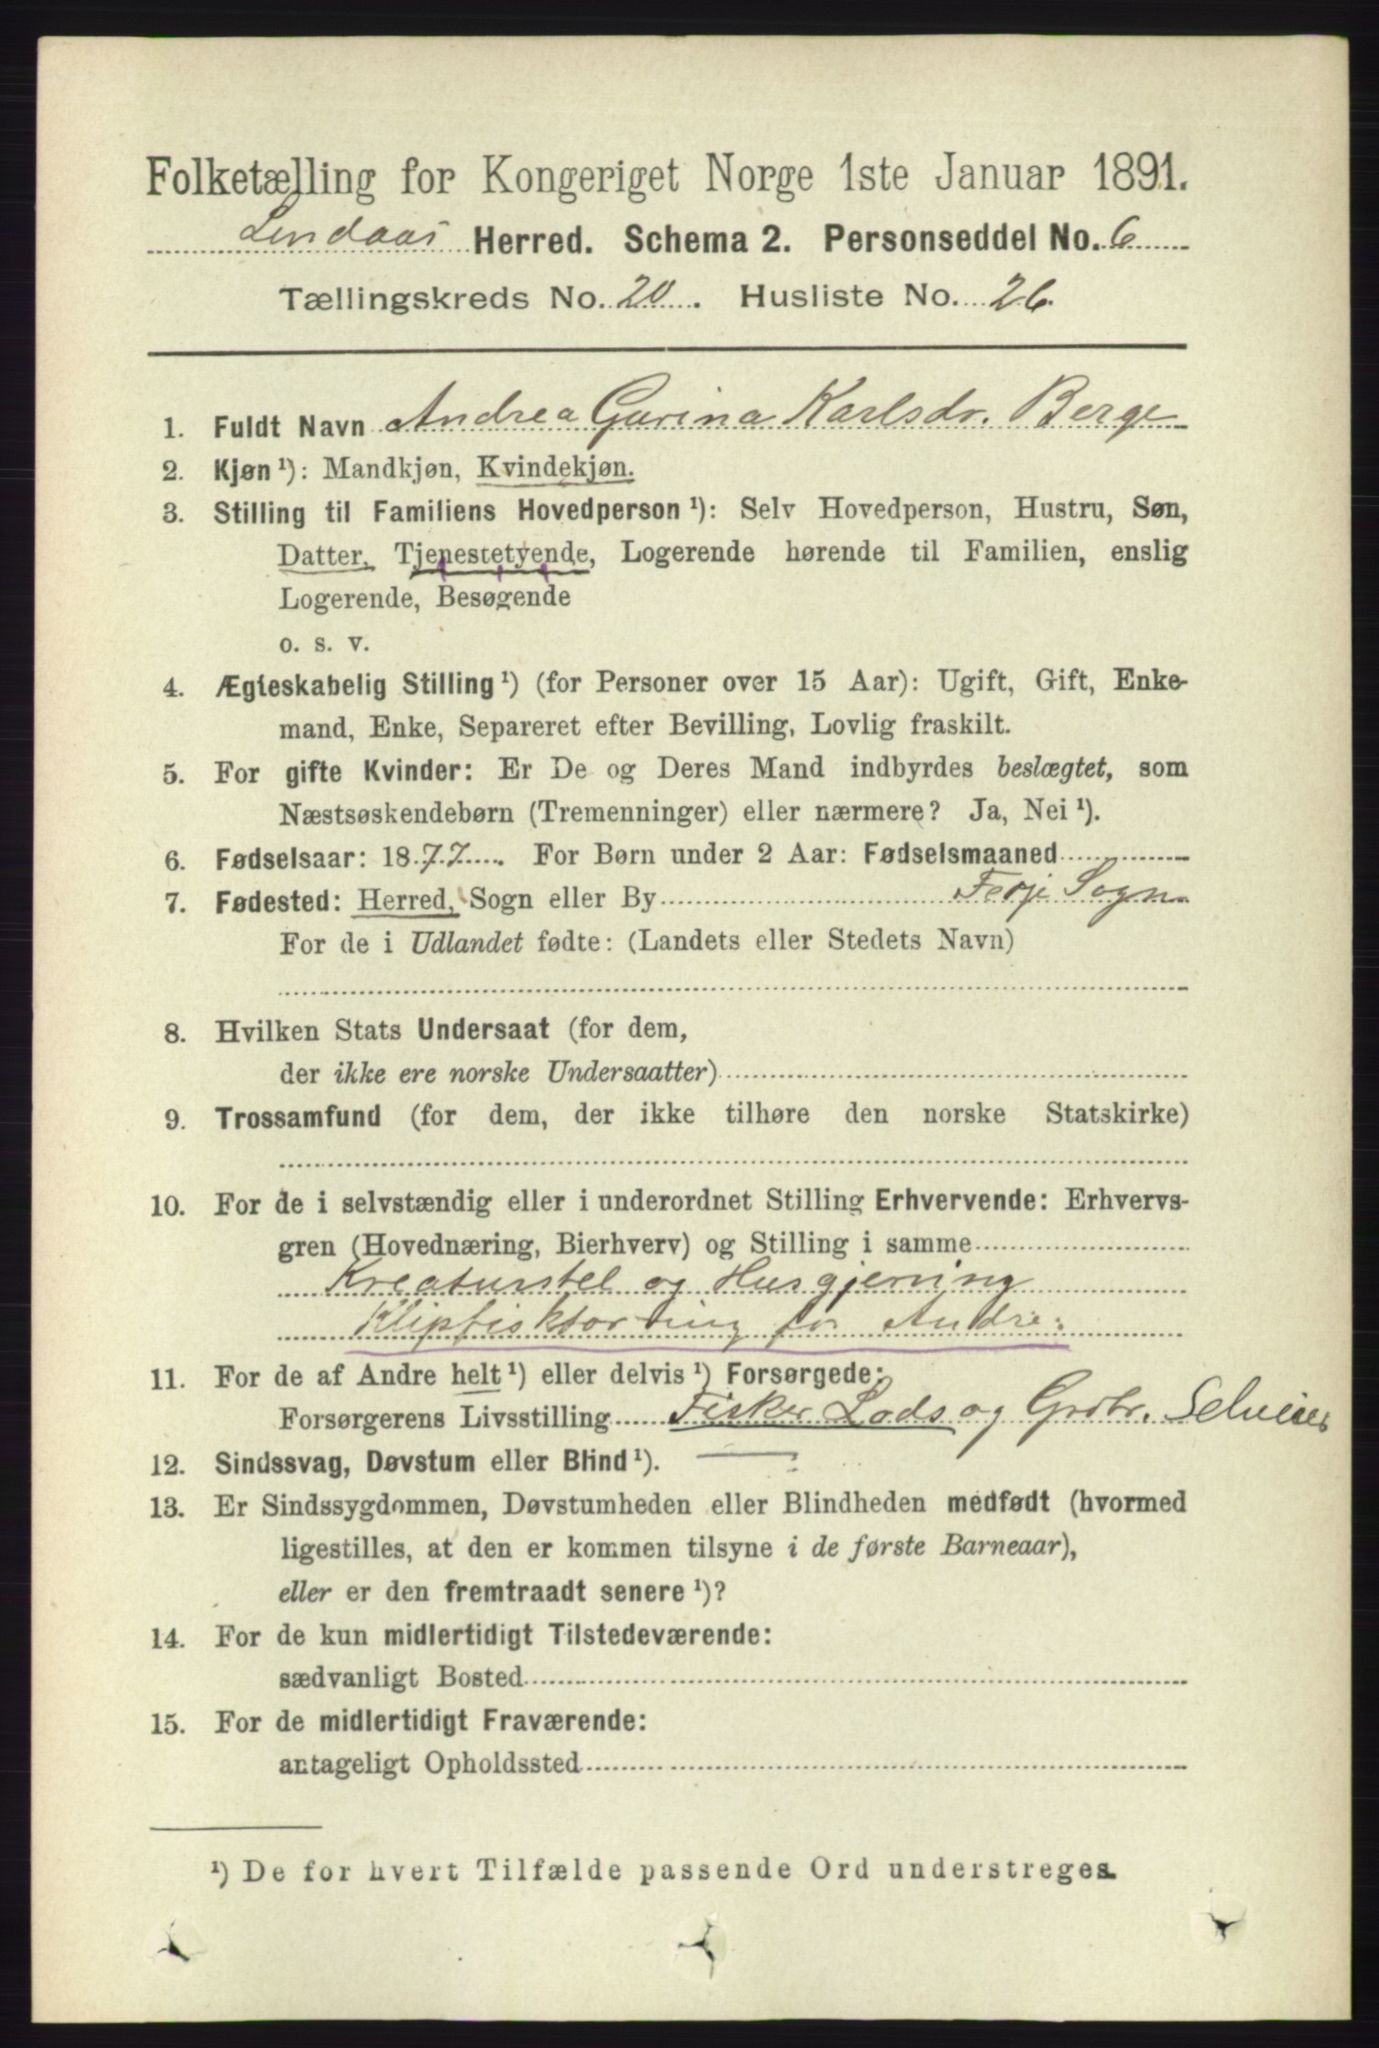 Folketælling for Kongeriget Norge 1ste Januar 1891.
Lindaas Herred. Schema 2. Personseddel No. 6
Tællingskreds No. 20. Husliste No. 26.
1. Fuldt Navn Andrea Gurina Karlsdr. Berge
2. Kjøn ¹): Mandkjøn, Kvindekjøn.
3. Stilling til Familiens Hovedperson ¹): Selv Hovedperson, Hustru, Søn,
Datter, Tjenestetyende, Logerende hørende til Familien, enslig
Logerende, Besøgende
o. s. v.
4. Ægteskabelig Stilling ¹) (for Personer over 15 Aar): Ugift, Gift, Enke-
mand, Enke, Separeret efter Bevilling, Lovlig fraskilt.
5. For gifte Kvinder: Er De og Deres Mand indbyrdes beslægtet, som
Næstsøskendebørn (Tremenninger) eller nærmere? Ja, Nei ¹).
6. Fødselsaar: 1877. For Børn under 2 Aar: Fødselsmaaned
7. Fødested: Herred, Sogn eller By Feoje Sogn
For de i Udlandet fødte: (Landets eller Stedets Navn)
8. Hvilken Stats Undersaat (for dem,
der ikke ere norske Undersaatter)
9. Trossamfund (for dem, der ikke tilhøre den norske Statskirke)
10. For de i selvstændig eller i underordnet Stilling Erhvervende: Erhvervs-
gren (Hovednæring, Bierhverv) og Stilling i samme
Kreaturstel og Husgjerning
Klipfisktørking for Andre.
11. For de af Andre helt ¹) eller delvis ¹) Forsørgede:
Forsørgerens Livsstilling Fisker Lods og Grdbr. Selveier
12. Sindssvag, Døvstum eller Blind ¹).
13. Er Sindssygdommen, Døvstumheden eller Blindheden medfødt (hvormed
ligestilles, at den er kommen tilsyne i de første Barneaar),
eller er den fremtraadt senere ¹)?
14. For de kun midlertidigt Tilstedeværende:
sædvanligt Bosted
15. For de midlertidigt Fraværende:
antageligt Opholdssted
¹) De for hvert Tilfælde passende Ord understreges.